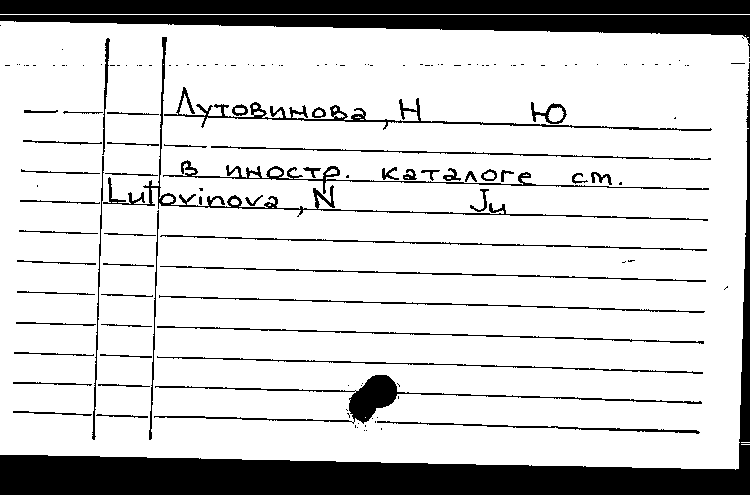 Лутовинова, Н Ю
в иностр. каталоге см.
Lutovinova, N Ju